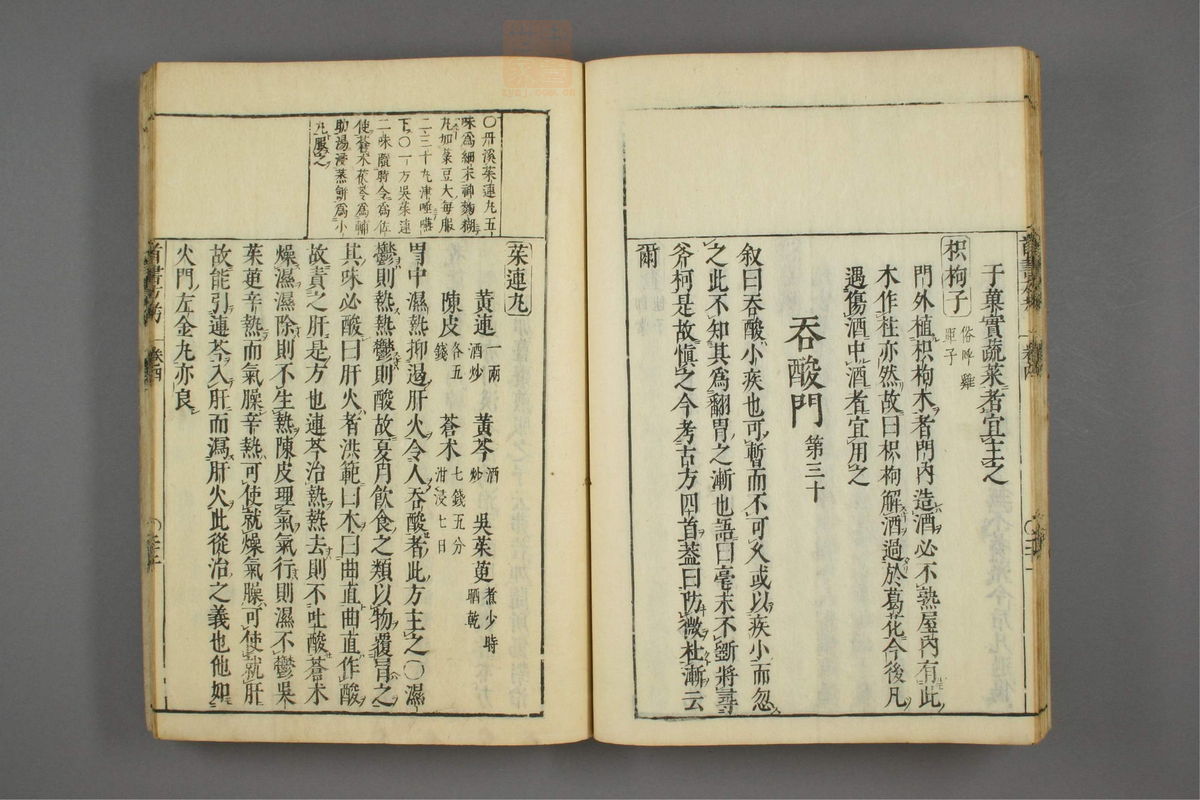 于菓實蔬菜者宜主之
枳椇子 俗呼雞
距子
門外植枳椇木者門內造酒必不熟屋內有此
木作柱亦然故曰枳椇解酒過於葛花今後凡
遇傷酒中酒者宜用之
吞酸門 第三十
叙曰吞酸小疾也可暫而不可久或以疾小而忽
之此不知其爲翻胃之漸也語曰毫末不斵將尋
斧柯是故愼之今考古方四首葢曰防微杜漸云
爾
〇丹溪茱連丸五
味爲細末神麴糊
丸如菉豆大每服
二三十丸津唾嚥
下〇一方吳茱連
二味隨時令爲佐
使蒼朮茯苓爲輔
助湯浸蒸餅爲小
丸服之
茱連丸
黃連 一兩
酒炒 黃芩 酒
炒 吳茱萸 煮少時
晒乾
陳皮 各五
錢 蒼朮 七錢五分
泔浸七日
胃中濕熱抑遏肝火令人吞酸者此方主之〇濕
鬱則熱熱鬱則酸故夏月飲食之類以物覆冒之
其味必酸曰肝火者洪範曰木曰曲直曲直作酸
故責之肝是方也連芩治熱熱去則不吐酸蒼朮
燥濕濕除則不生熱陳皮理氣氣行則濕不鬱吳
茱萸辛熱而氣臊辛熱可使就燥氣臊可使就肝
故能引連芩入肝而瀉肝火此從治之義也他如
火門左金丸亦良
首書方考 卷四